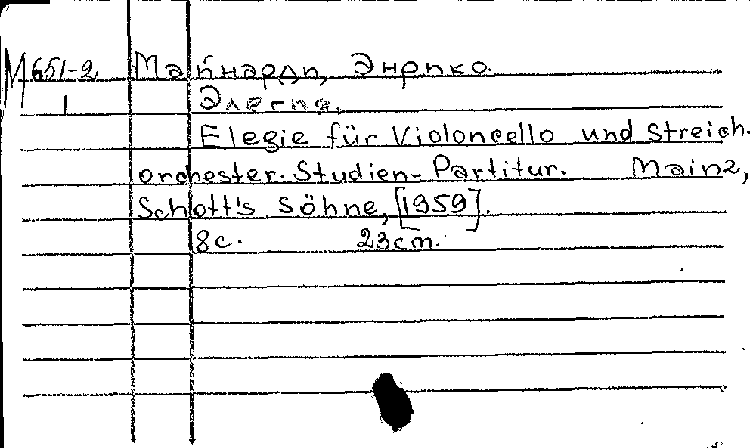 М651-2 Майнарди, Энрико.
1 Элегия.
Elegie für Violoncello und Streich-
orchester. Studien-Partitur. Mainz,
Schott's Söhne, [1959].
8с. 23cm.